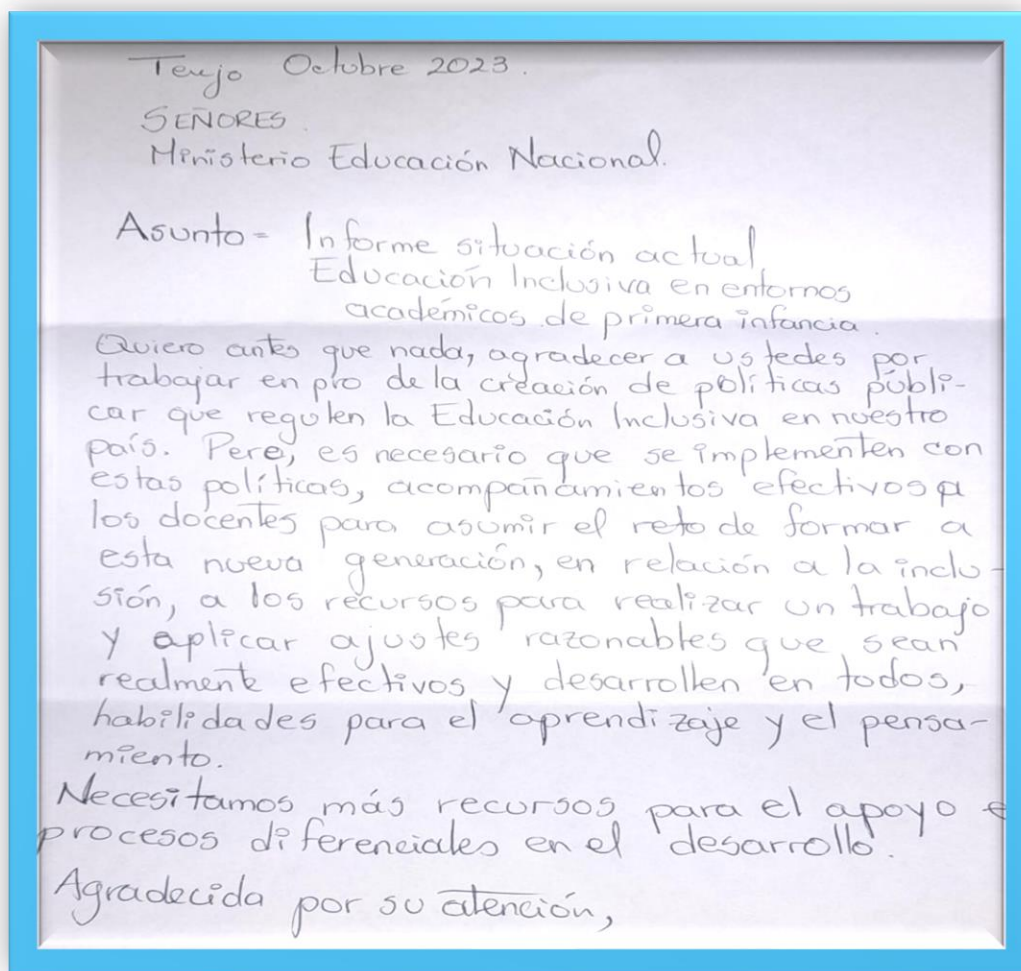 Tenjo Octubre 2023.
SEÑORES
Ministerio Educación Nacional.
Asunto= Informe situación actual
Educación Inclusiva en entornos
académicos de primera infancia.
Quiero antes que nada, agradecer a ustedes por
trabajar en pro de la creación de políticas públi-
car que regulen la Educación Inclusiva en nuestro
país. Pero, es necesario que se implementen con
estas políticas, acompañamientos efectivos a
los docentes para asumir el reto de formar a
esta nueva generación, en relación a la inclu-
sión, a los recursos para realizar un trabajo
y aplicar ajustes razonables que sean
realmente efectivos y desarrollen en todos,
habilidades para el aprendizaje y el pensa-
miento.
Necesitamos más recursos para el apoyo e
procesos diferenciales en el desarrollo.
Agradecida por su atención,